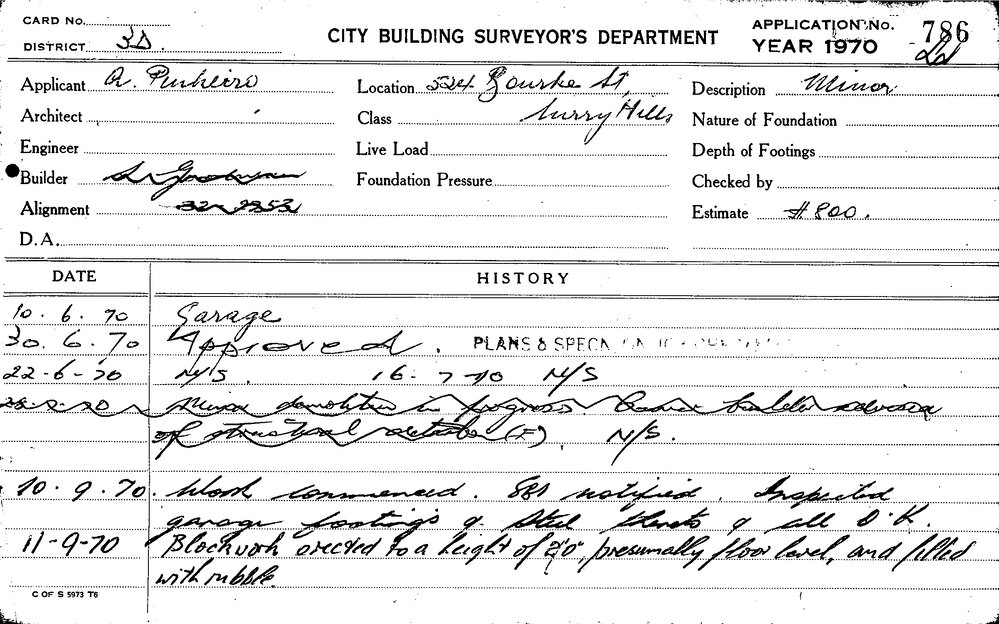 CARD No.
DISTRICT 3D
CITY BUILDING SURVEYOR'S DEPARTMENT
APPLICATION No. 786
YEAR 1970
Applicant A. Pinheiro
Location 524 Bourke St,
Description Minor
Architect
Class Surry Hills
Nature of Foundation
Engineer
Live Load
Depth of Footings
Builder
Foundation Pressure
Checked by
Alignment
Estimate $800.
D.A.
DATE HISTORY
10. 6. 70 Garage
30. 6. 70 Approved. PLANS & SPECN
22-6-70 N/S. 16-7-70 N/S
demolition in progress builder
of structural (F). N/S.
10. 9. 70. Work commenced. notified. Inspected
garage footings & steel & all O.K.
11-9-70 Blockwork erected to a height of 2'0", presumally floor level, and filled
with rubble.
C OF S 5973 T6